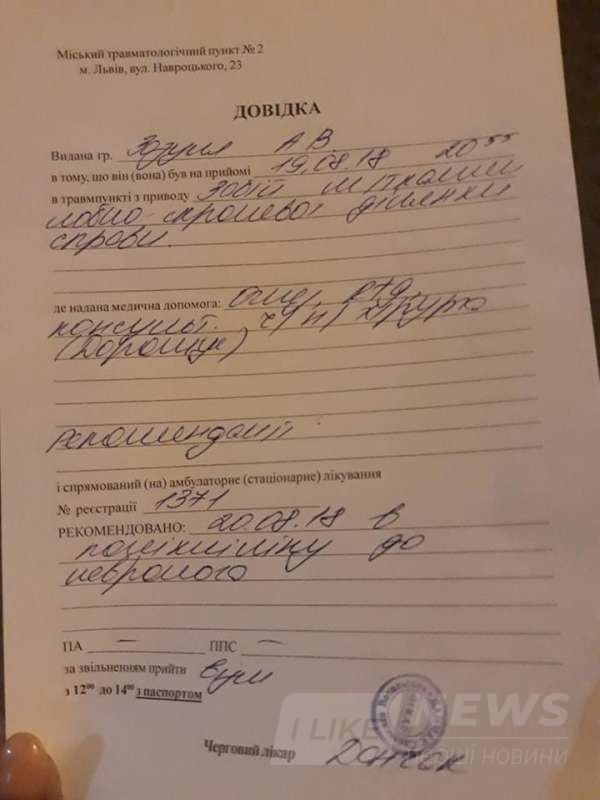 Міський травматологічний пункт № 2
м. Львів, вул. Навроцького, 23
ДОВІДКА
Видана гр. А В
в тому, що він (вона) був на прийомі 19.08.18 20⁵⁵
в травмпункті з приводу Забій м'тканин
лобно-скроневої ділянки
справа.
де надана медична допомога: огляд, р-гр,
консульт. н/хірурга
(Дорощук)
Рекомендації:
і спрямований (на) амбулаторне (стаціонарне) лікування
№ реєстрації 1371
РЕКОМЕНДОВАНО: 20.08.18 в
поліклініку до
невролога
ПА — ППС —
за звільненням прийти
з 12⁰⁰ до 14⁰⁰ з паспортом
I LIKE 1NEWS
перші новини
Черговий лікар